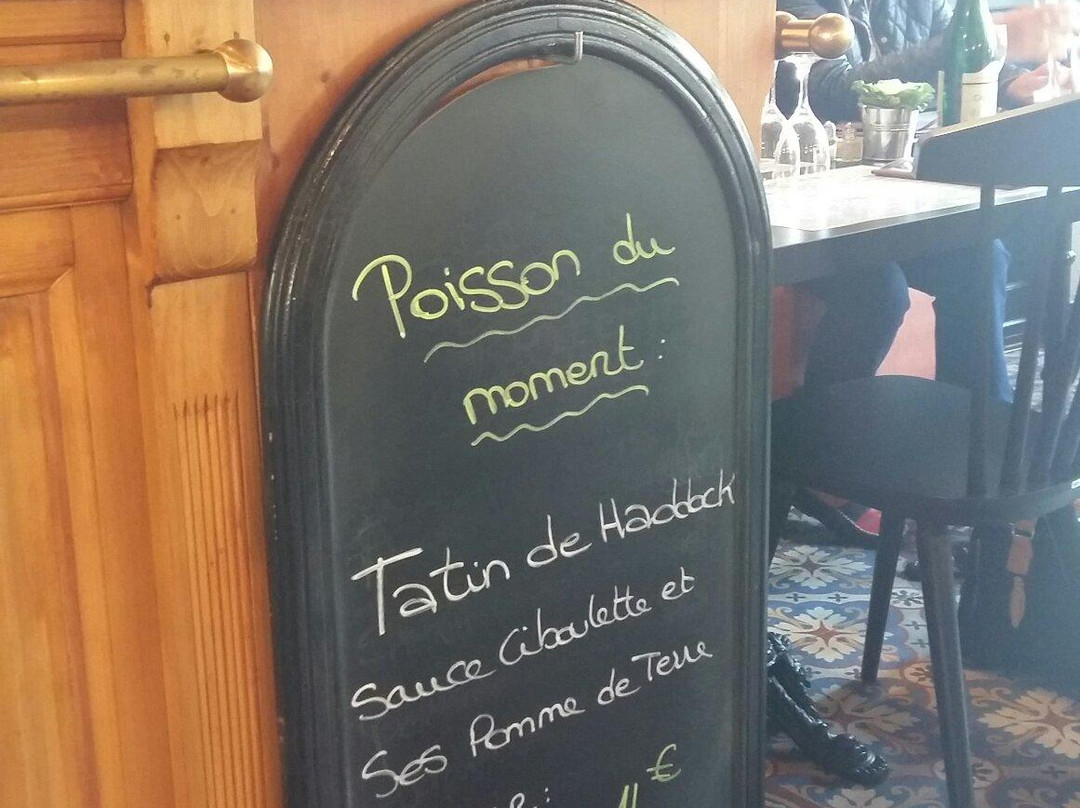 Poisson du
moment :
Tatin de Haddock
Sauce Ciboulette et
Ses Pomme de Terre
€